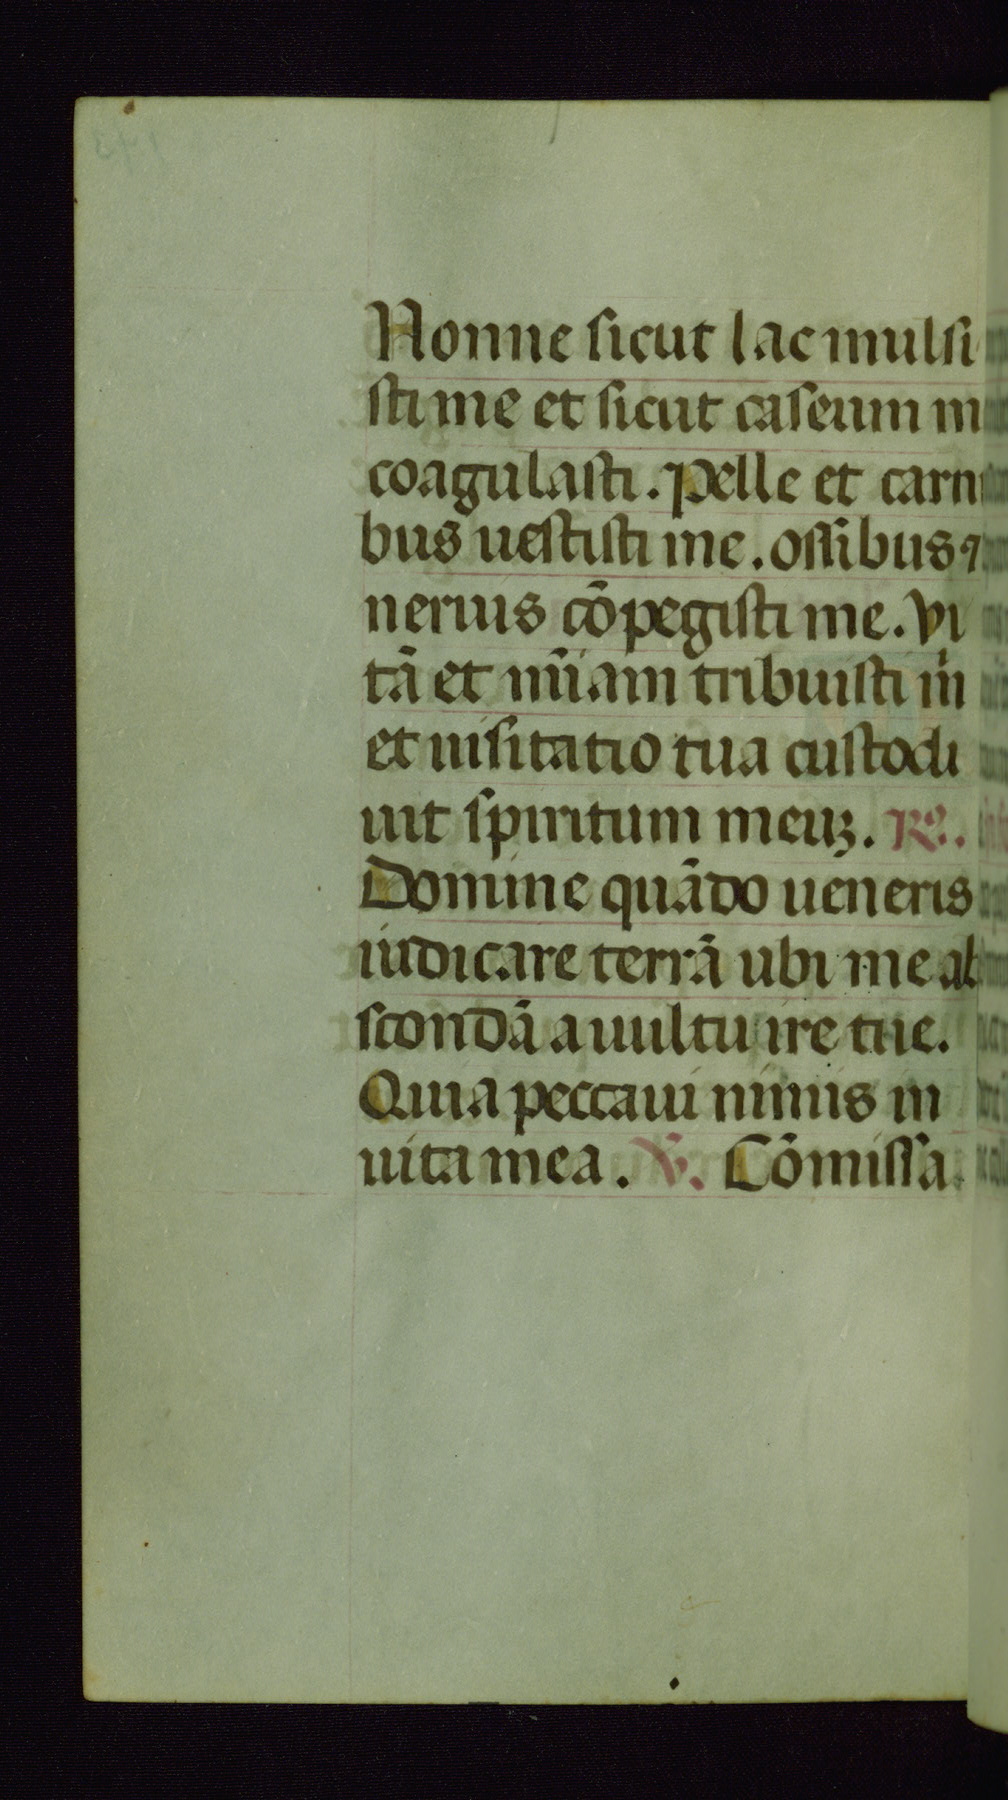 Nonne sicut lac mulsi
sti me et sicut caseum m
coagulasti. Pelle et carni
bus uestisti me. ossibus ⁊
neruis cōpegisti me. Vi
tā et mīam tribuisti m̄
et uisitatio tua custodi
uit spiritum meuꝫ. R⁄.
Domine quādo ueneris
iudicare terrā ubi me ab
scondā a uultu ire tue.
Quia peccaui nimis in
uita mea. V⁄. Cōmissa